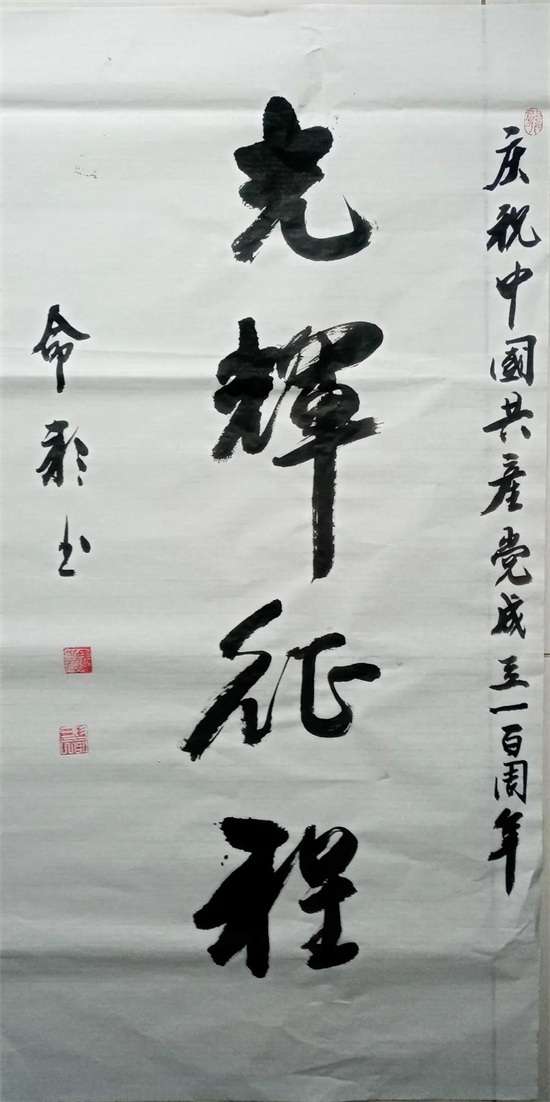 庆祝中國共産党成立一百周年
光輝征程
命彰书